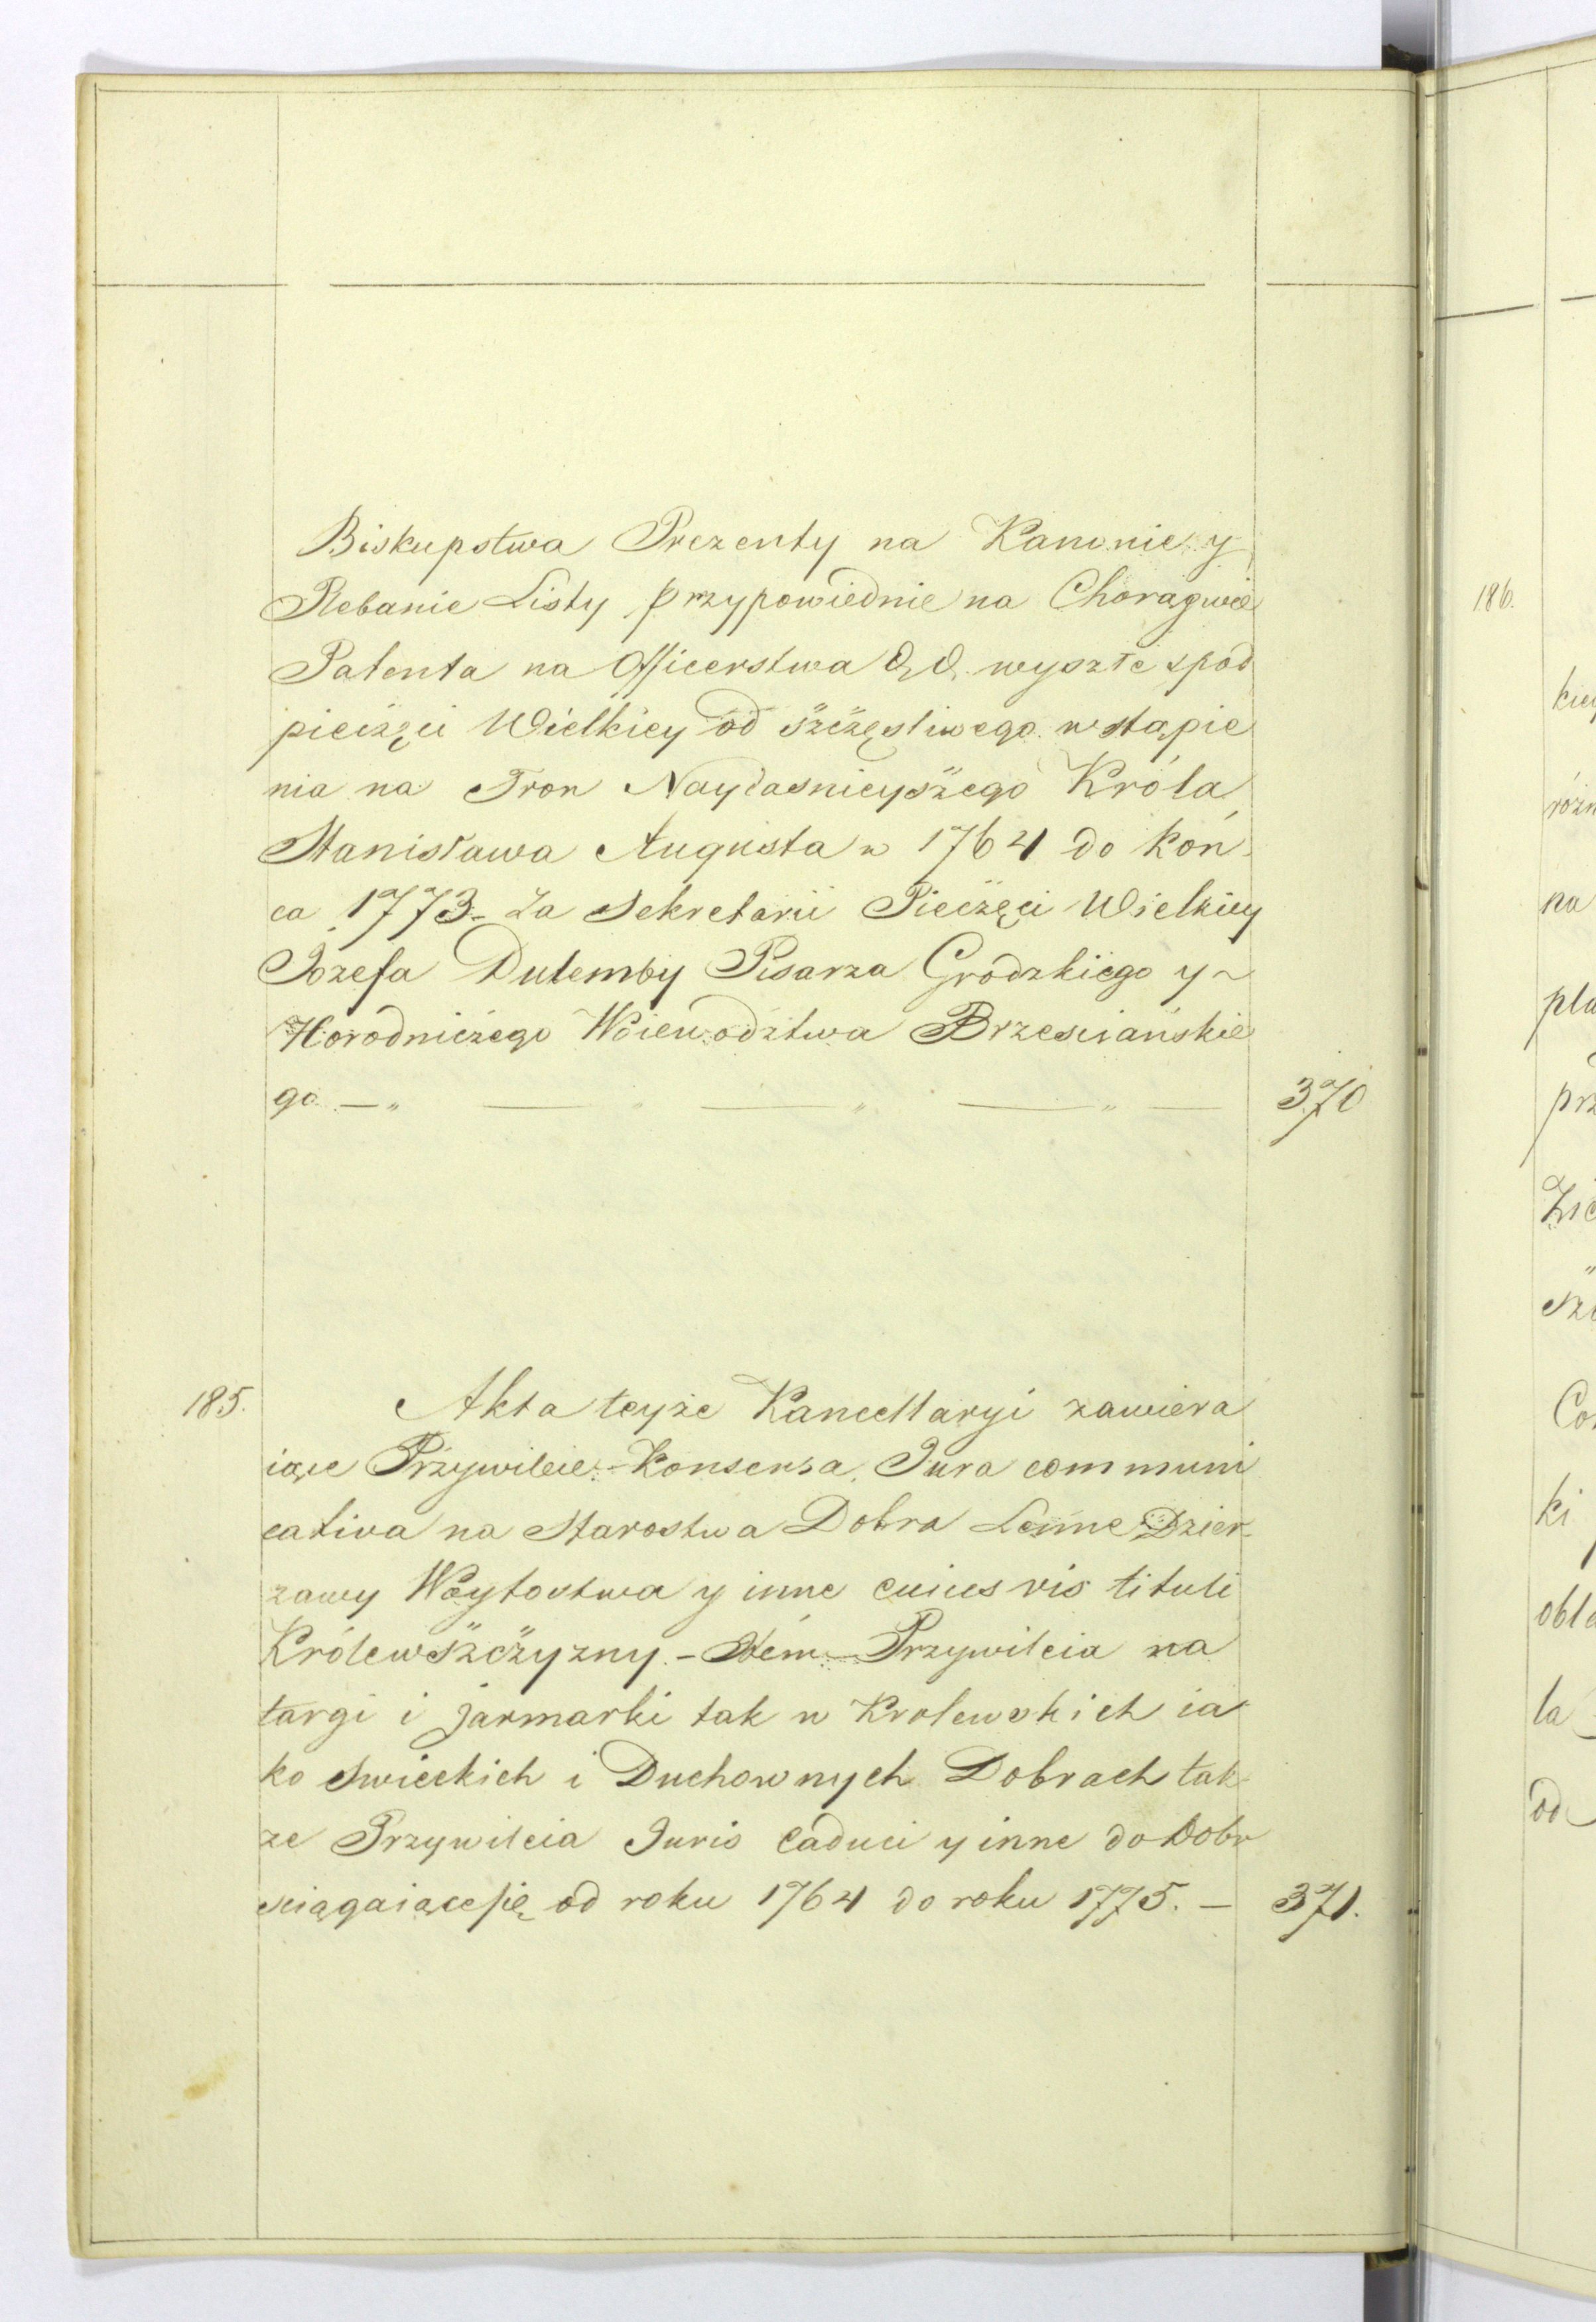 Biskupstwa Prezenty na Kanonie y
Plebanie Listy przypowiednie na Chorągwie
Patenta na Officerstwa &c. wyszłe spod
pieczęci Wielkiey od szczęsliwego wstąpie
nia na Tron Nayiasnieyszego Króla
Stanisława Augusta w 1764 do koń
ca 1773_ Za Sekretarii Pieczęci Wielkiey
Jozefa Dulemby Pisarza Grodzkiego y
Horodniczego Woiewodztwa Brzesciańskie
go — „ — „ — „ — „ — 370
185. Akta teyże Kancellaryi zawiera
iące Przywileie Konsensa, Jura communi
cativa na Starostwa Dobra Lenne Dzier
zawy Woytostwa y inne cuiusvis tituli
Królewszczyzny. - Item Przywileia na
targi i jarmarki tak w Krolewskich ia
ko Swieckich i Duchownych Dobrach tak
ze Przywileia Juris Caduci y inne do Dobr
sciągaiące się od roku 1764 do roku 1775. — 371.
186.
kiey
rózn
na
pla
prz
Co
ki
obla
la
od